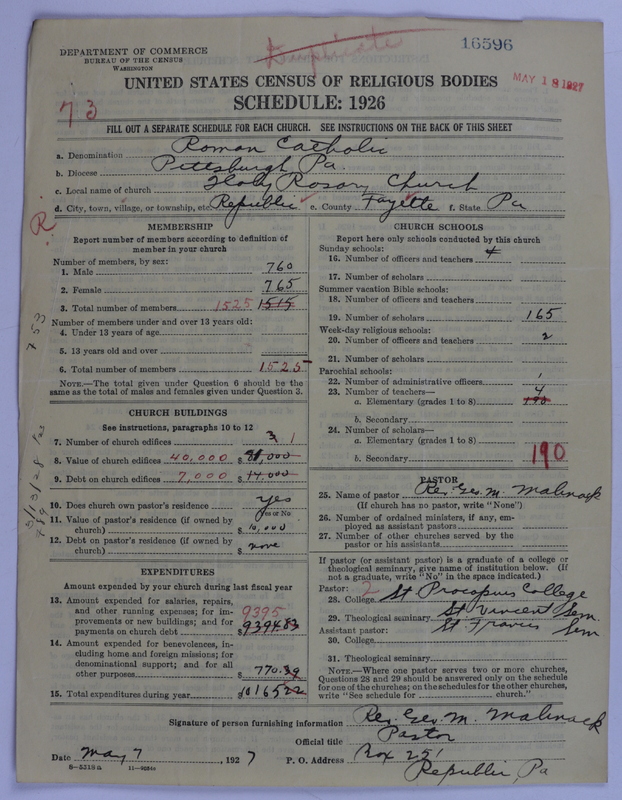 Duplicate
16596
DEPARTMENT OF COMMERCE
BUREAU OF THE CENSUS
WASHINGTON
UNITED STATES CENSUS OF RELIGIOUS BODIES
MAY 18 1927
SCHEDULE: 1926
73
FILL OUT A SEPARATE SCHEDULE FOR EACH CHURCH. SEE INSTRUCTIONS ON THE BACK OF THIS SHEET
a. Denomination Roman Catholic
b. Diocese Pittsburgh Pa.
c. Local name of church Holy Rosary Church
d. City, town, village, or township, etc. Republic e. County Fayette f. State Pa
R
MEMBERSHIP
Report number of members according to definition of
member in your church
Number of members, by sex:
1. Male 760
2. Female 765
3. Total number of members 1525 1515
Number of members under and over 13 years old:
4. Under 13 years of age
5. 13 years old and over
6. Total number of members 1525
NOTE.—The total given under Question 6 should be the
same as the total of males and females given under Question 3.
CHURCH BUILDINGS
See instructions, paragraphs 10 to 12
7. Number of church edifices 3 1
8. Value of church edifices 40,000 $
9. Debt on church edifices 7,000 $ 14,000
10. Does church own pastor's residence yes
Yes or No
11. Value of pastor's residence (if owned by
church) $ 10,000
12. Debt on pastor's residence (if owned by
church) $ none
EXPENDITURES
Amount expended by your church during last fiscal year
13. Amount expended for salaries, repairs,
and other running expenses; for im-
provements or new buildings; and for
payments on church debt 9395 $ 9394.83
14. Amount expended for benevolences, in-
cluding home and foreign missions; for
denominational support; and for all
other purposes $ 770.39
15. Total expenditures during year $ 10165.22
CHURCH SCHOOLS
Report here only schools conducted by this church
Sunday schools:
16. Number of officers and teachers 4
17. Number of scholars
Summer vacation Bible schools:
18. Number of officers and teachers
19. Number of scholars 165
Week-day religious schools:
20. Number of officers and teachers 2
21. Number of scholars
Parochial schools:
22. Number of administrative officers 1
23. Number of teachers— 4
a. Elementary (grades 1 to 8) 190
b. Secondary
24. Number of scholars—
a. Elementary (grades 1 to 8)
190
b. Secondary
PASTOR
25. Name of pastor Rev. Geo. M. Malinack
(If church has no pastor, write "None")
26. Number of ordained ministers, if any, em-
ployed as assistant pastors
27. Number of other churches served by the
pastor or his assistants
If pastor (or assistant pastor) is a graduate of a college or
theological seminary, give name of institution below. (If
not a graduate, write "No" in the space indicated.)
Pastor: 2
28. College St Procopius College
29. Theological seminary St Vincent Sem.
Assistant pastor: St Francis Sem
30. College
31. Theological seminary
NOTE.—Where one pastor serves two or more churches,
Questions 28 and 29 should be answered only on the schedule
for one of the churches; on the schedules for the other churches,
write "See schedule for church."
Signature of person furnishing information Rev. Geo. M. Malinack
Official title Pastor
Date May 7, 1927 P. O. Address Box 251
Republic, Pa
8—5318a 11—92540
753
5/13/28